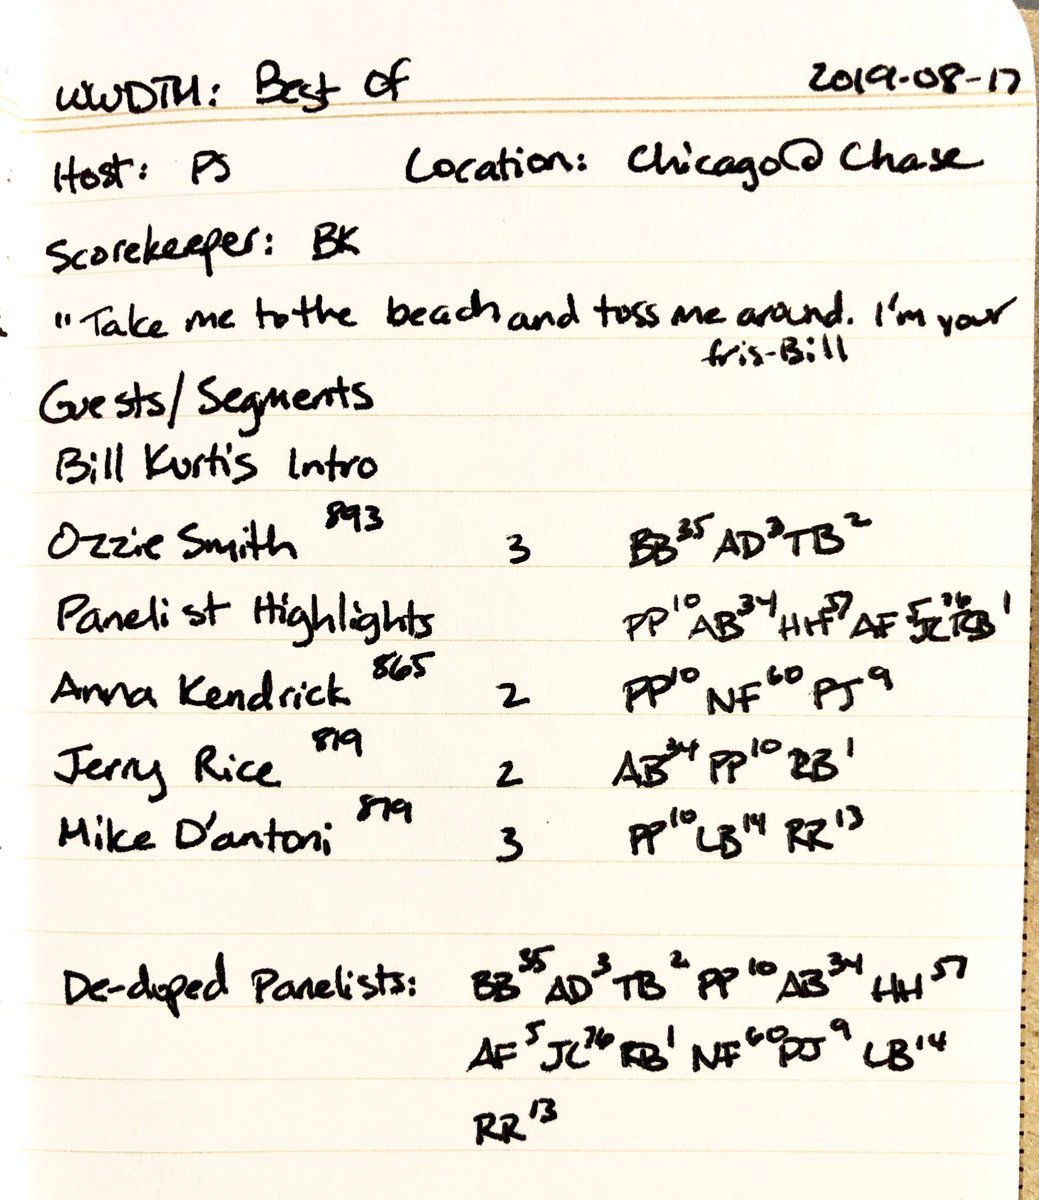 WWDTM: Best Of 2019-08-17
Host: PS Location: Chicago @ Chase
Scorekeeper: BK
"Take me to the beach and toss me around. I'm your
fris-Bill
Guests/Segments
Bill Kurtis Intro
Ozzie Smith 893 3 BB35 AD3 TB2
Panelist Highlights PP10 AB34 HH57 AF5 JC76 RB1
Anna Kendrick 865 2 PP10 NF60 PJ9
Jerry Rice 819 2 AB34 PP10 RB1
Mike D'antoni 879 3 PP10 LB14 RR13
De-duped Panelists: BB35 AD3 TB2 PP10 AB34 HH57
AF5 JC76 RB1 NF60 PJ9 LB14
RR13